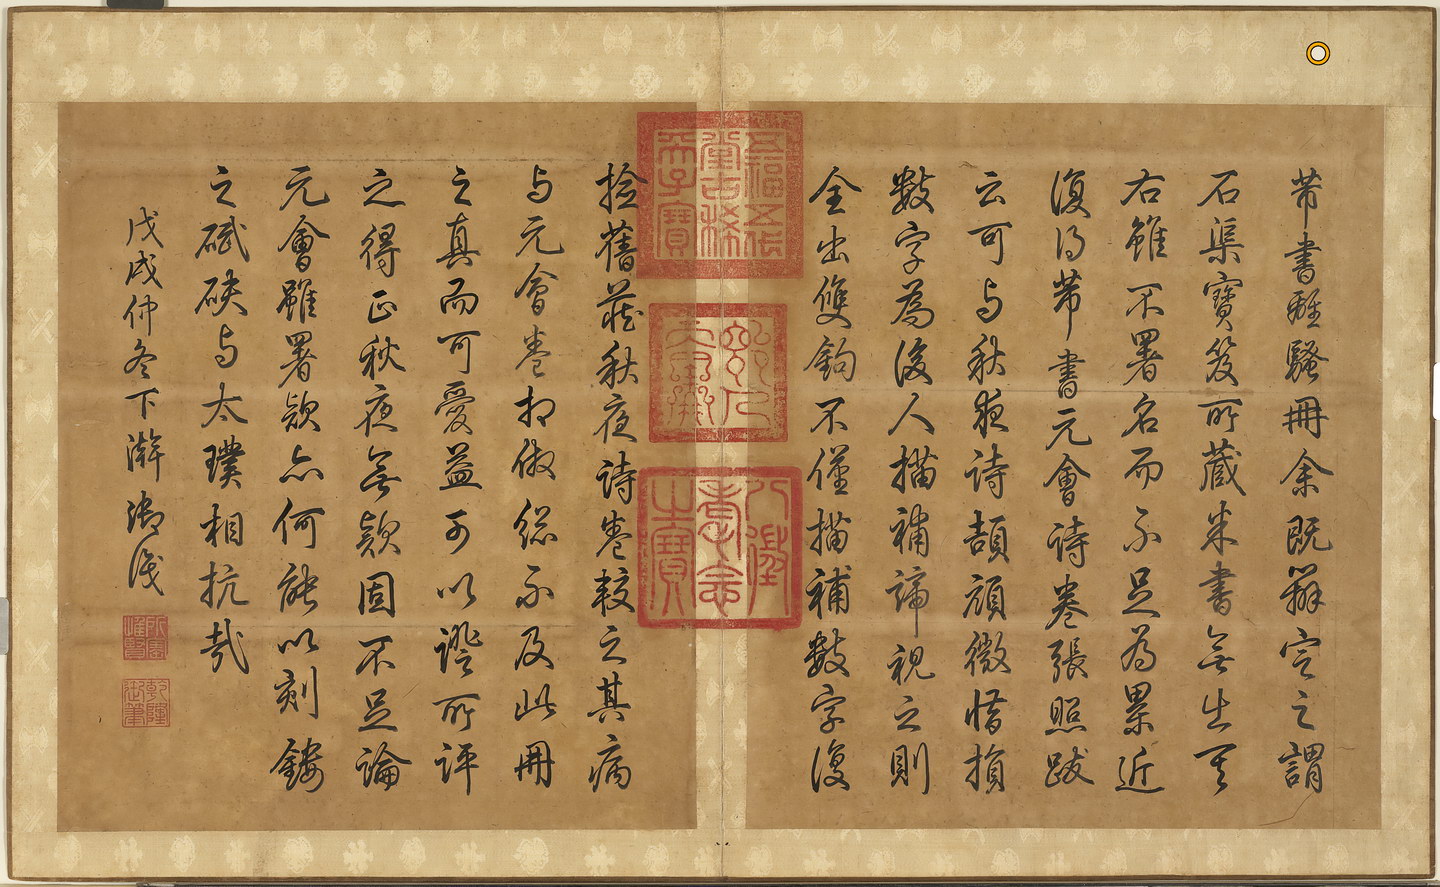 芾書離騷冊余既辨定之謂
石渠寶笈所藏米書無出其
右雖不署名而不足為累近
復得芾書元會詩卷張照跋
云可與秋夜詩頡頏微惜損
數字為後人描補諦視之則
全出雙鉤不僅描補數字復
撿舊藏秋夜詩卷較之其病
與元會卷相倣總不及此冊
之真而可愛益可以證所評
之得正秋夜無款固不足論
元會雖署款亦何能以刻鏤
之碔砆與太璞相抗哉
戊戌仲冬下澣御識
五福五代堂古稀天子寶
八徵耄念之寶
所寶惟賢
乾隆御筆